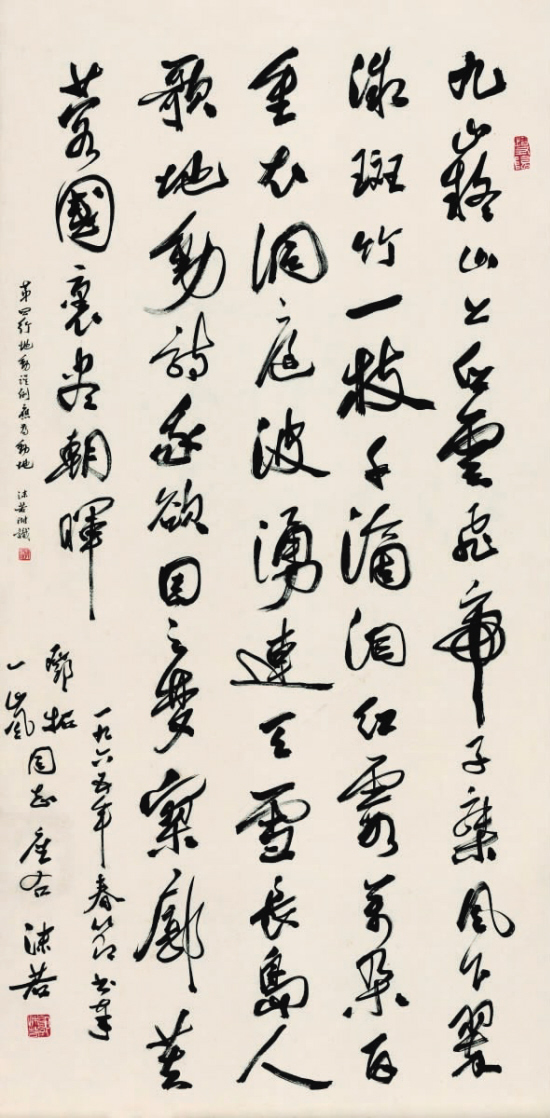 九嶷山上白雲飛帝子乘風下翠
微斑竹一枝千滴泪紅霞萬朵百
重衣洞庭波湧連天雪長島人
歌地動詩我欲因之夢寥廓芙
蓉國裏尽朝暉
第四行地動誤倒應為動地 沫若附識
一九六五年春節書奉
鄧拓
一嵐同志座右 沫若